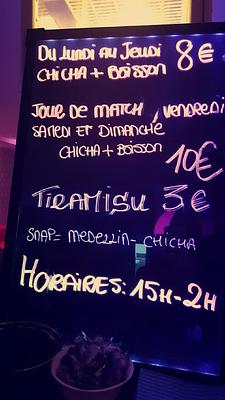 DU LUNDI AU JEUDI 8€
CHICHA + BOISSON
JOUR DE MATCH, VENDREDI
SAMEDI ET DIMANCHE
CHICHA + BOISSON 10€
TIRAMISU 3€
SNAP= MEDELLIN-CHICHA
HORAIRES: 15H-2H